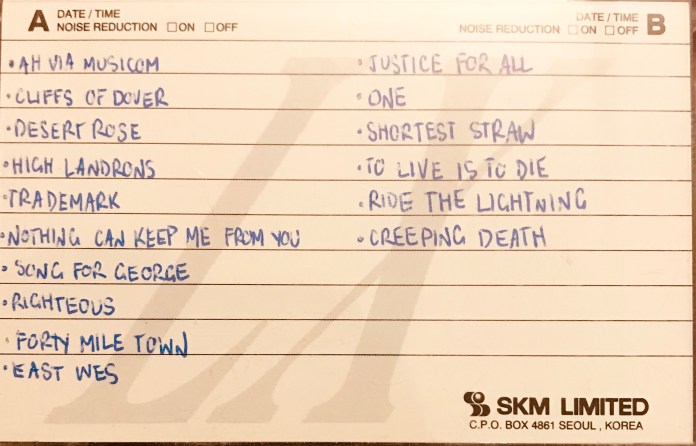 A DATE / TIME
NOISE REDUCTION □ON □OFF
DATE / TIME B
NOISE REDUCTION □ON □OFF
•AH VIA MUSICOM
•CLIFFS OF DOVER
•DESERT ROSE
•HIGH LANDRONS
•TRADEMARK
•NOTHING CAN KEEP ME FROM YOU
•SONG FOR GEORGE
•RIGHTEOUS
•FORTY MILE TOWN
•EAST WES
•JUSTICE FOR ALL
•ONE
•SHORTEST STRAW
•TO LIVE IS TO DIE
•RIDE THE LIGHTNING
•CREEPING DEATH
LX
SKM LIMITED
C.P.O. BOX 4861 SEOUL , KOREA